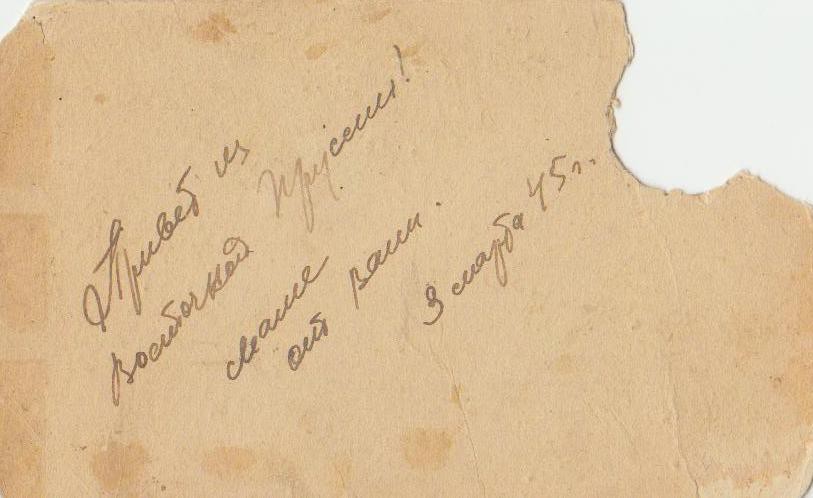 Привет из
восточной Пруссии!
Маше
от Вани.
3 марта 45 г.